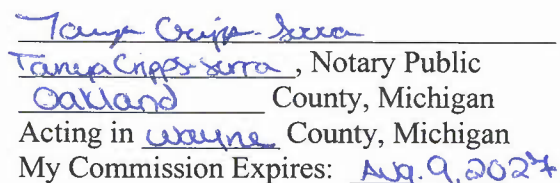 Tanya Cripps-Serra
Tanya Cripps-Serra, Notary Public
Oakland County, Michigan
Acting in Wayne County, Michigan
My Commission Expires: Aug. 9, 2027